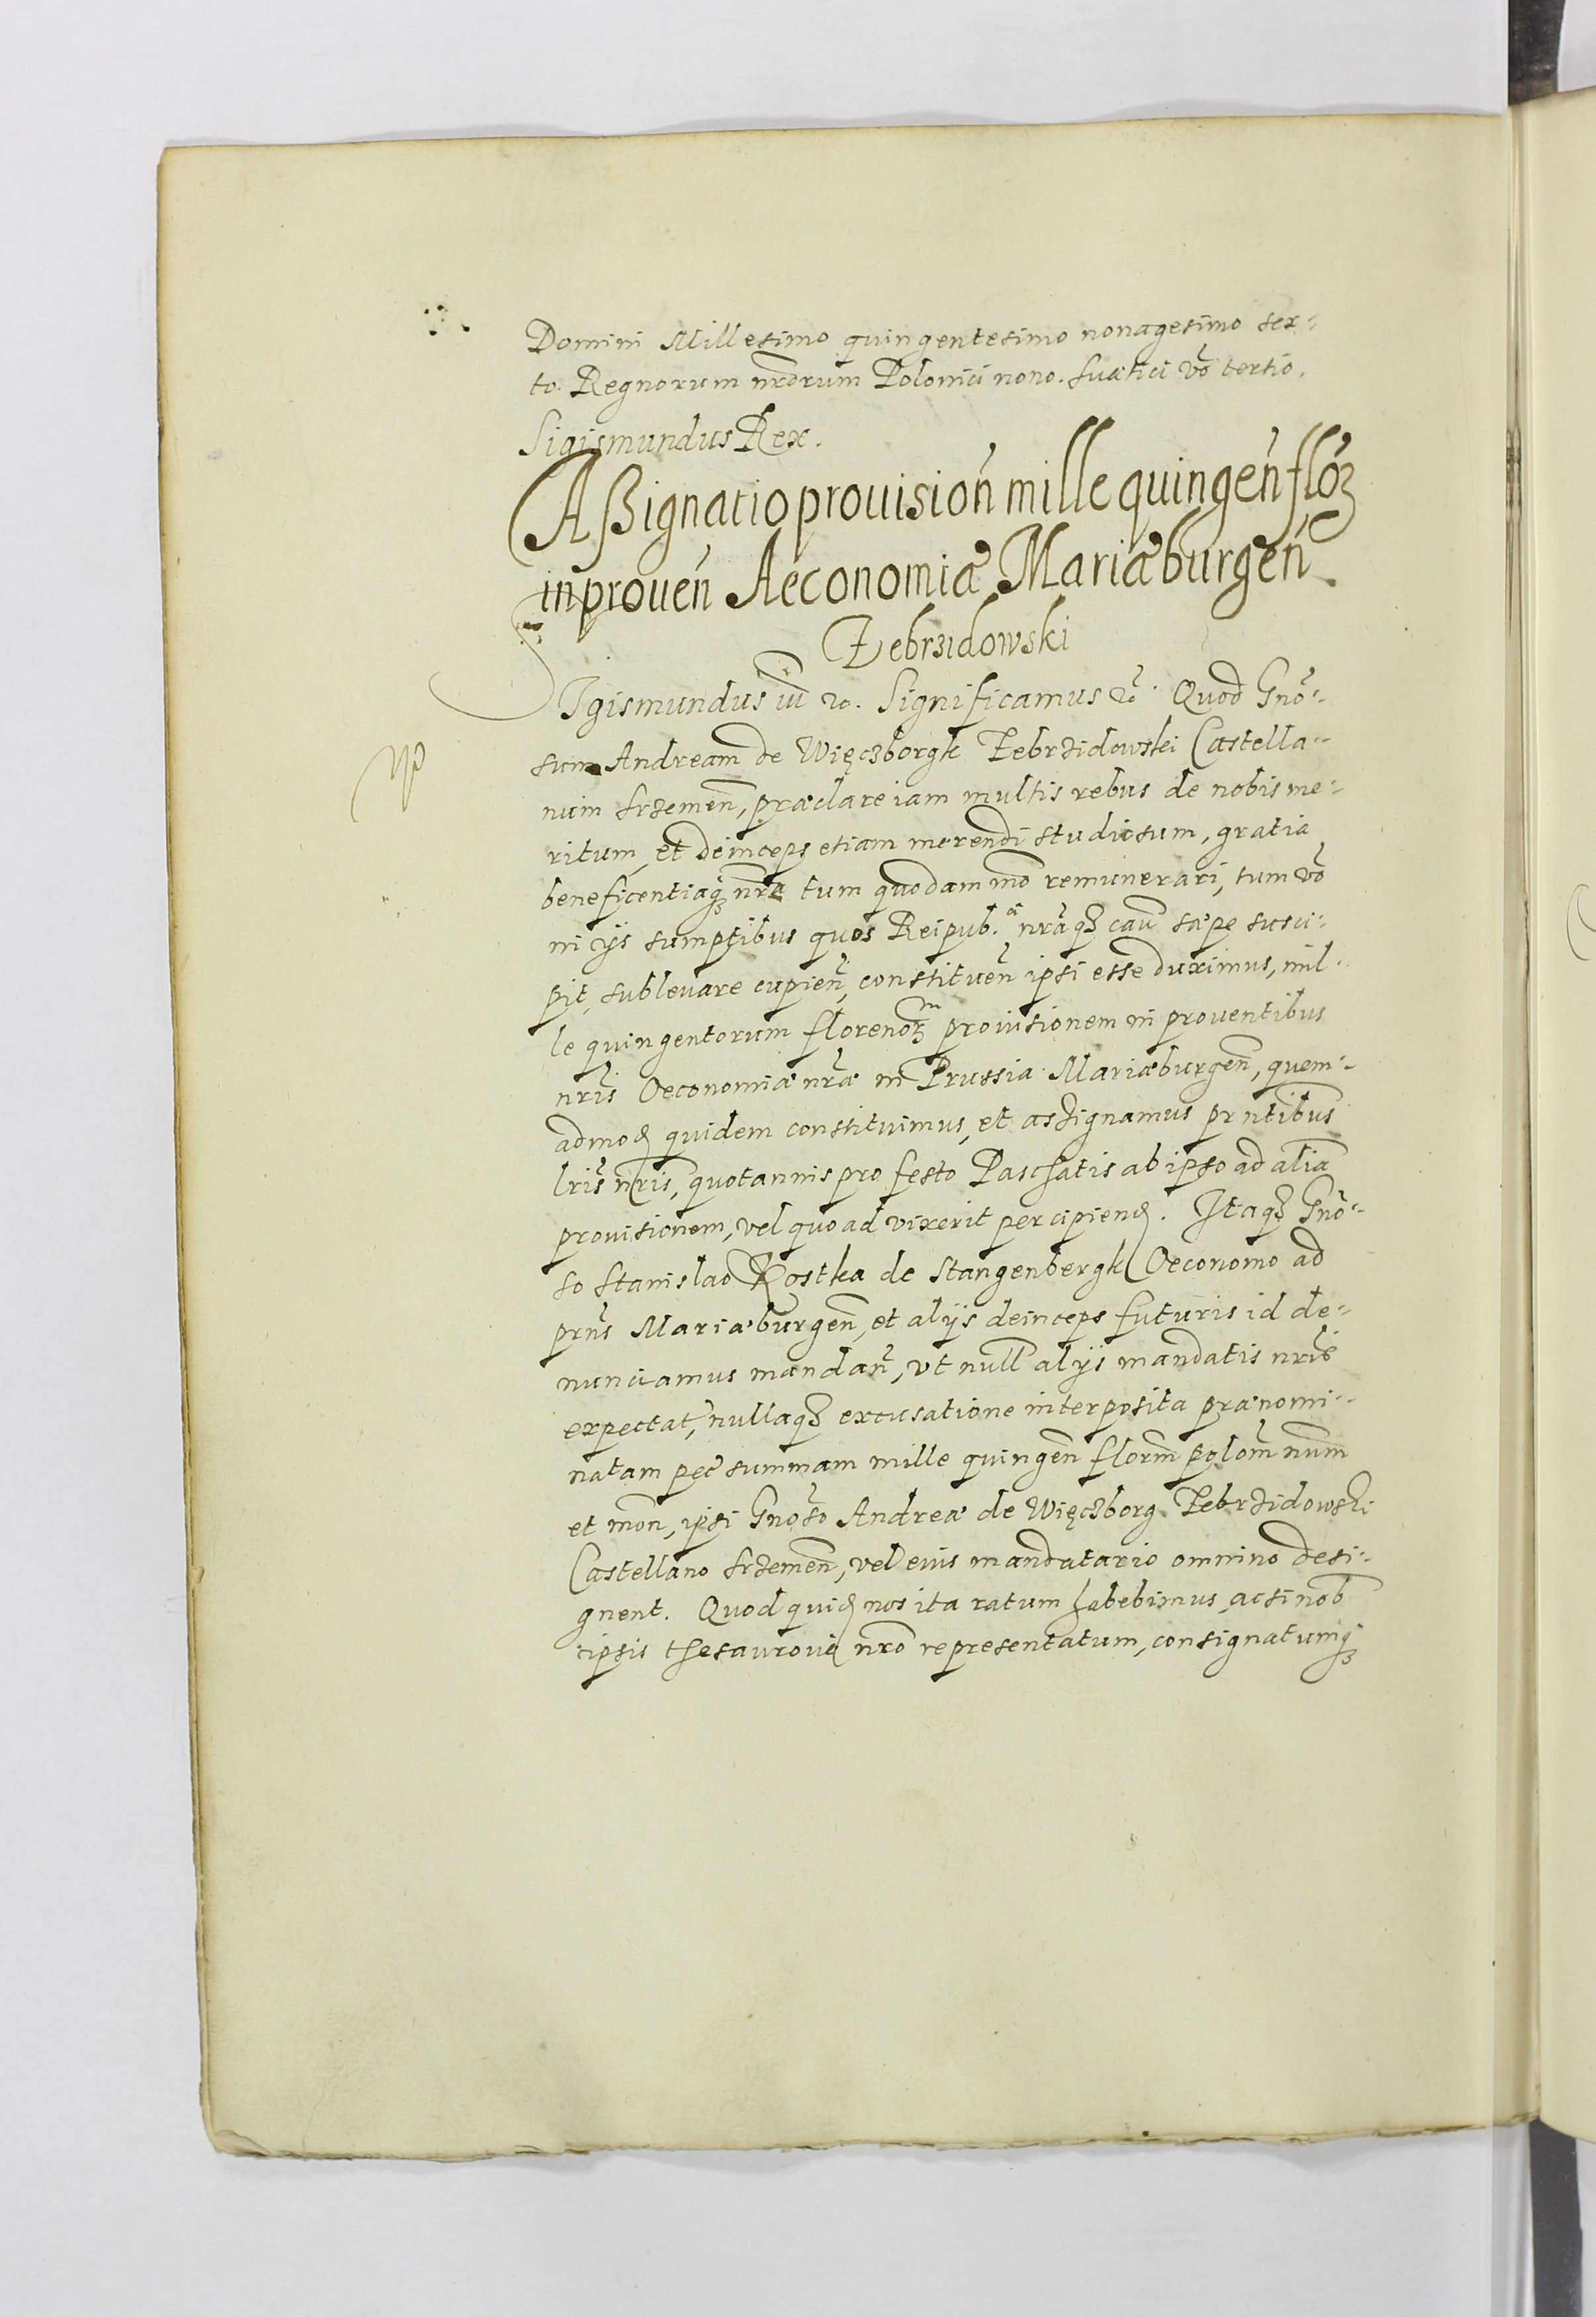 Domini Millesimo quingentesimo nonagesimo sex-
to. Regnorum nr̃orum Polonici nono. Suetici vo᷃ tertio.
Sigismundus Rex.
Aßignatio prouision̄ mille quingen̄ floꝝ
in prouen̄ Aeconomiæ Mariæburgen̄
Zebrzidowski
Sigismundus iii ꝛc. Significamus ꝛc̃. Quod Gnõ-
sum Andream de Więczborgk Zebrzidowski Castella-
num Srzemen̄, præclare iam multis rebus de nobis me-
ritum, et deinceps etiam merendi studiosum, gratia
beneficentiaqꝫ nr̃a tum quodam mo᷃ remunerari, tum vo᷃
in ijs sumptibus quos Reipub.æ nr̃aqꝫ cau᷃ sæpe susci-
pit, subleuare cupien̄, constituen̄ ipsi esse duximus, mil-
le quingentorum florenoꝝ prouisionem in prouentibus
nr̃is Oeconomiæ nr̃æ in Prussia Mariæburgen̄, quem-
admoꝺ quidem constituimus, et assignamus prñtibus
lr̃is nr̃is, quotannis pro festo Paschatis ab ipso ad aliã
prouisionem, vel quo ad vixerit percipienꝺ. Itaqꝫ Gnõ-
so Stanislao Kostka de Stangenbergk Oeconomo ad
prñs Mariæburgen̄, et alijs deinceps futuris id de-
nunciamus mandan̄, vt null alijs mandatis nr̃is
expectat᷃, nullaqꝫ excusatione interposita prænomi-
natam pec̃ summam mille quingen̄ florn̄ polon̄ num̃
et mon̄, ipsi Gnõso Andreæ de Więczborg Zebrzidowski
Castellano Srzemen̄, vel eius mandatario omnino desi-
gnent. Quod quiꝺ nos ita ratum habebimus, ac si nob̃
ipsis thesauroue nr̃o representatum, consignatumqꝫ